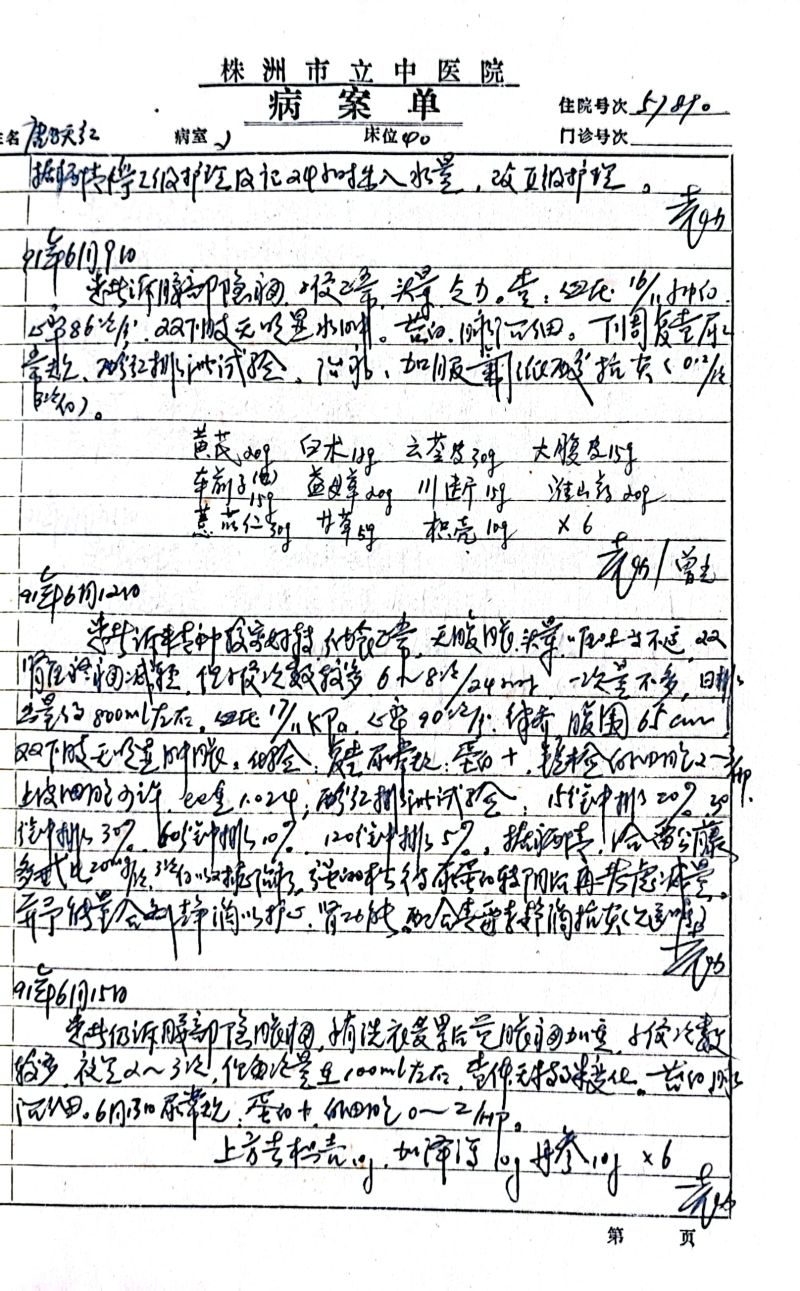 株洲市立中医院
病案单
住院号次 51890
姓名 病室 2 床位 40 门诊号次
据病情停Ⅰ级护理及记24小时出入水量，改Ⅱ级护理。
91年6月9日
患者诉腰部隐痛，小便正常，头晕乏力。查：血压16/11
心率86次/分，双下肢无明显水肿。苔白，脉沉细。下周复查尿
常规，酚红排泄试验，加服 抗炎（0.2/次
3次/日）。
黄芪20g 白术12g 云苓皮30g 大腹皮15g
车前子(包)15g 益母草20g 川断15g 淮山药20g
薏苡仁30g 甘草5g 枳壳10g ×6
91年6月12日
患者诉 精神 较好转，饮食正常，无腹胀，头晕 双
肾区 痛减轻，但小便次数较多 6~8次/24小时，一次量不多，日排
出量约800ml左右。血压17/11KPa，心率90次/分，律齐，腹围65cm，
双下肢无明显肿胀。化验：复查尿常规：蛋白+，镜检 白细胞2-3/HP.
上皮细胞少许 比重1.024，酚红排泄试验：15分钟排泄20% 30
分钟排泄30% 60分钟排泄10% 120分钟排泄5%。据病情， 雷公藤
多甙 20mg/次，3次/日 强的松待尿蛋白转阴后再考虑减量。
并予能量合剂静滴以护心、肾功能。配合青霉素静滴抗炎
91年6月15日
患者仍诉腰部隐胀痛，自有洗衣 累后觉胀痛加重，小便次数
较多，夜尿2~3次，但每次量至100ml左右，查体无特殊变化。苔白，脉
沉细。6月13日尿常规：蛋白+，白细胞0~2/HP。
上方去枳壳10g，加泽泻10g 丹参10g ×6
第 页